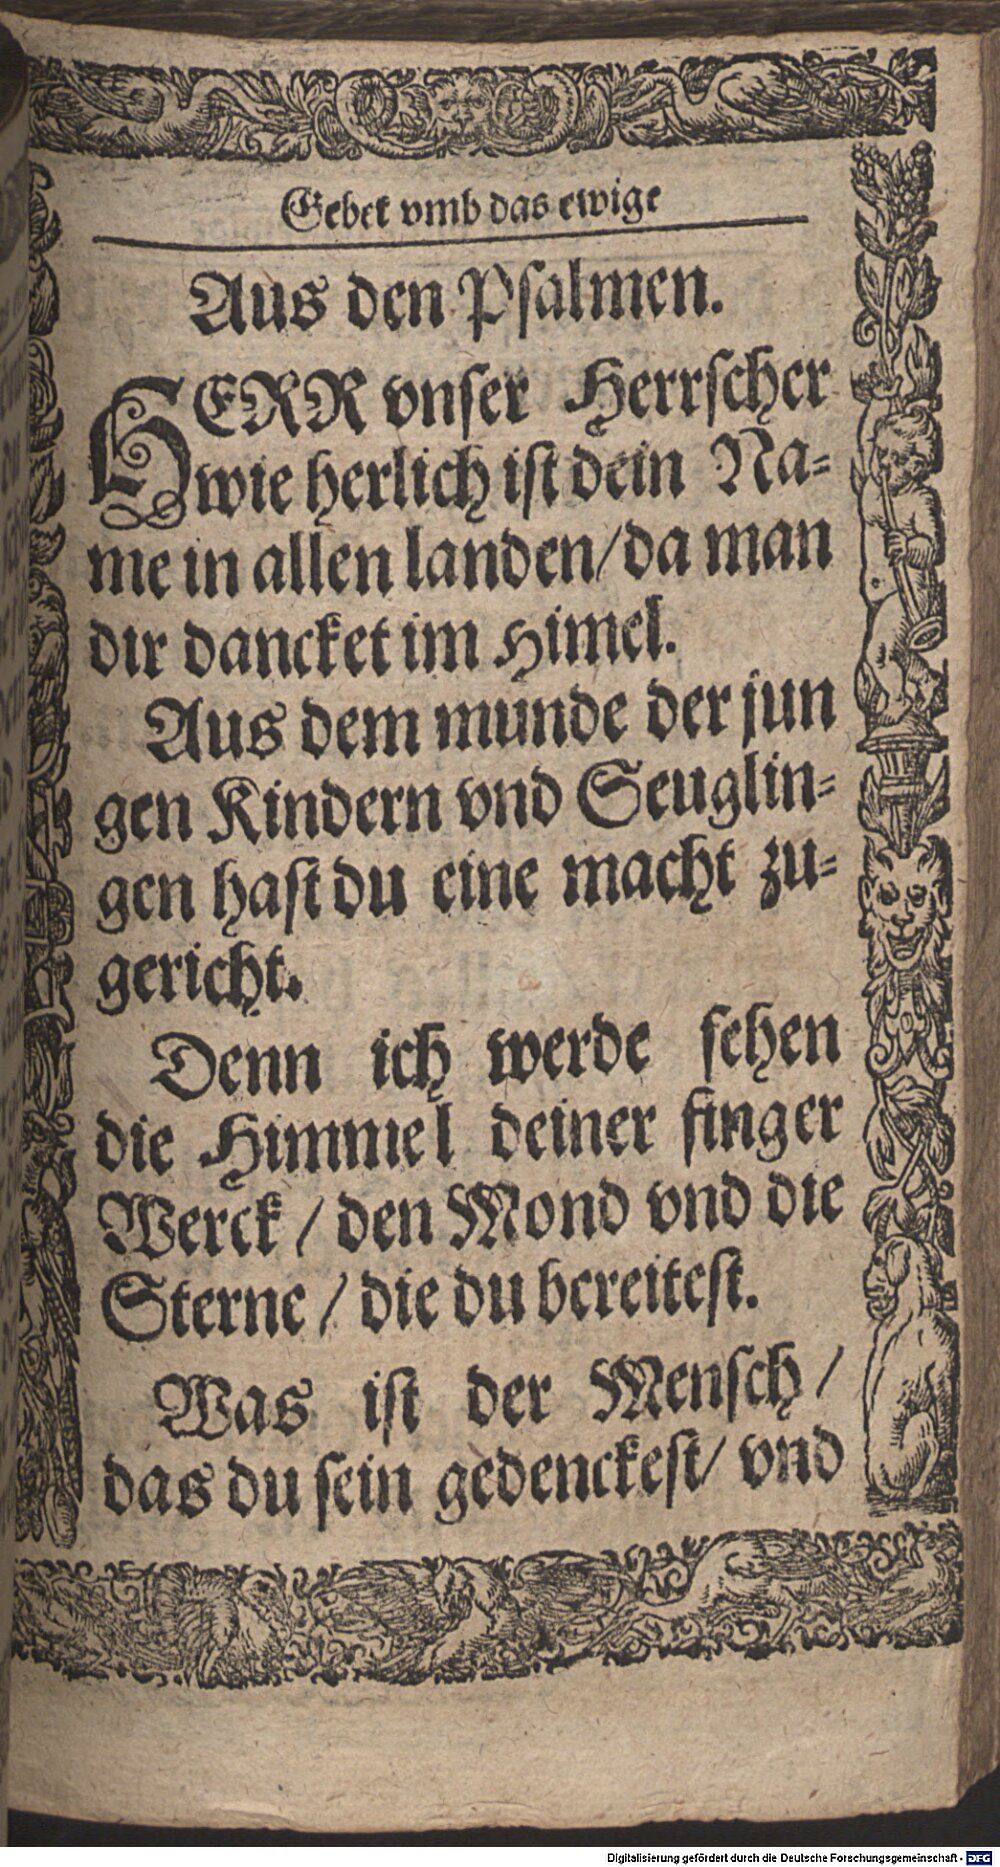 Gebet vmb das ewige
Aus den Psalmen.
HERR vnser Herrscher
wie herlich ist dein Na=
me in allen landen/da man
dir dancket im Himel.
Aus dem munde der jun
gen Kindern vnd Seuglin=
gen hast du eine macht zu=
gericht.
Denn ich werde sehen
die Himmel deiner finger
Werck / den Mond vnd die
Sterne / die du bereitest.
Was ist der Mensch /
das du sein gedenckest/ vnd
Digitalisierung gefördert durch die Deutsche Forschungsgemeinschaft - DFG